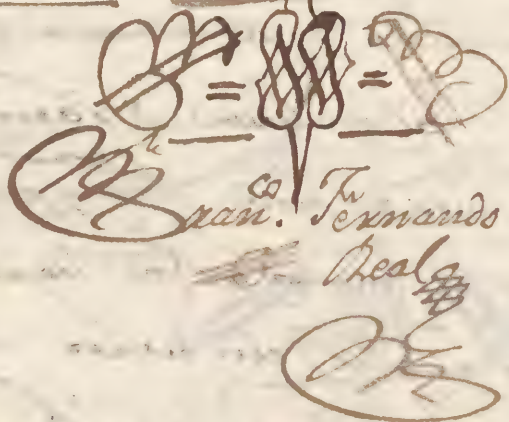 Fran.co Fernando
Real